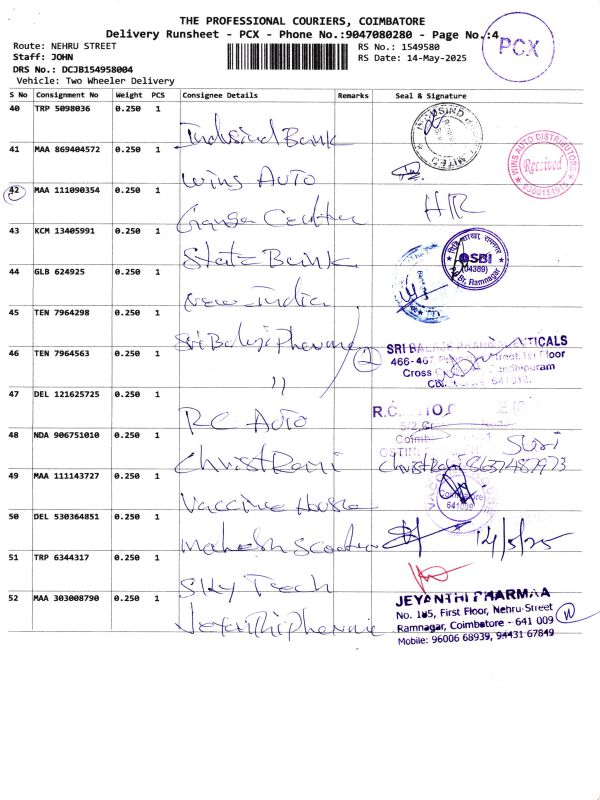 THE PROFESSIONAL COURIERS, COIMBATORE
Delivery Runsheet - PCX - Phone No.:9047080280 - Page No.:4
PCX
Route: NEHRU STREET
RS No.: 1549580
Staff: JOHN
RS Date: 14-May-2025
DRS No.: DCJB154958004
Vehicle: Two Wheeler Delivery
S No Consignment No Weight PCS Consignee Details Remarks Seal & Signature
40 TRP 5098036 0.250 1
Indusind Bank
41 MAA 869404572 0.250 1
Wins Auto
WINS AUTO DISTRIBUTORS
Received
42 MAA 111090354 0.250 1
Ganga
HR
43 KCM 13405991 0.250 1
State Bank
SBI
(04389)
Ramnagar
44 GLB 624925 0.250 1
New India
45 TEN 7964298 0.250 1
Sri Balaji Pharma
2
SRI
466-467
Floor
Cross
46 TEN 7964563 0.250 1
"
47 DEL 121625725 0.250 1
RC Auto
R.C.
5/2
48 NDA 906751010 0.250 1
Christ Rani
Susi
Christ Rani 8637487973
49 MAA 111143727 0.250 1
Vaccine House
641009
50 DEL 530364851 0.250 1
Mahesh Scooter
14/5/25
51 TRP 6344317 0.250 1
Sky Tech
52 MAA 303008790 0.250 1
Jeyanthi Pharma
JEYANTHI PHARMAA
No. 105, First Floor, Nehru Street
Ramnagar, Coimbatore - 641 009
Mobile: 96006 68939, 94431 67849